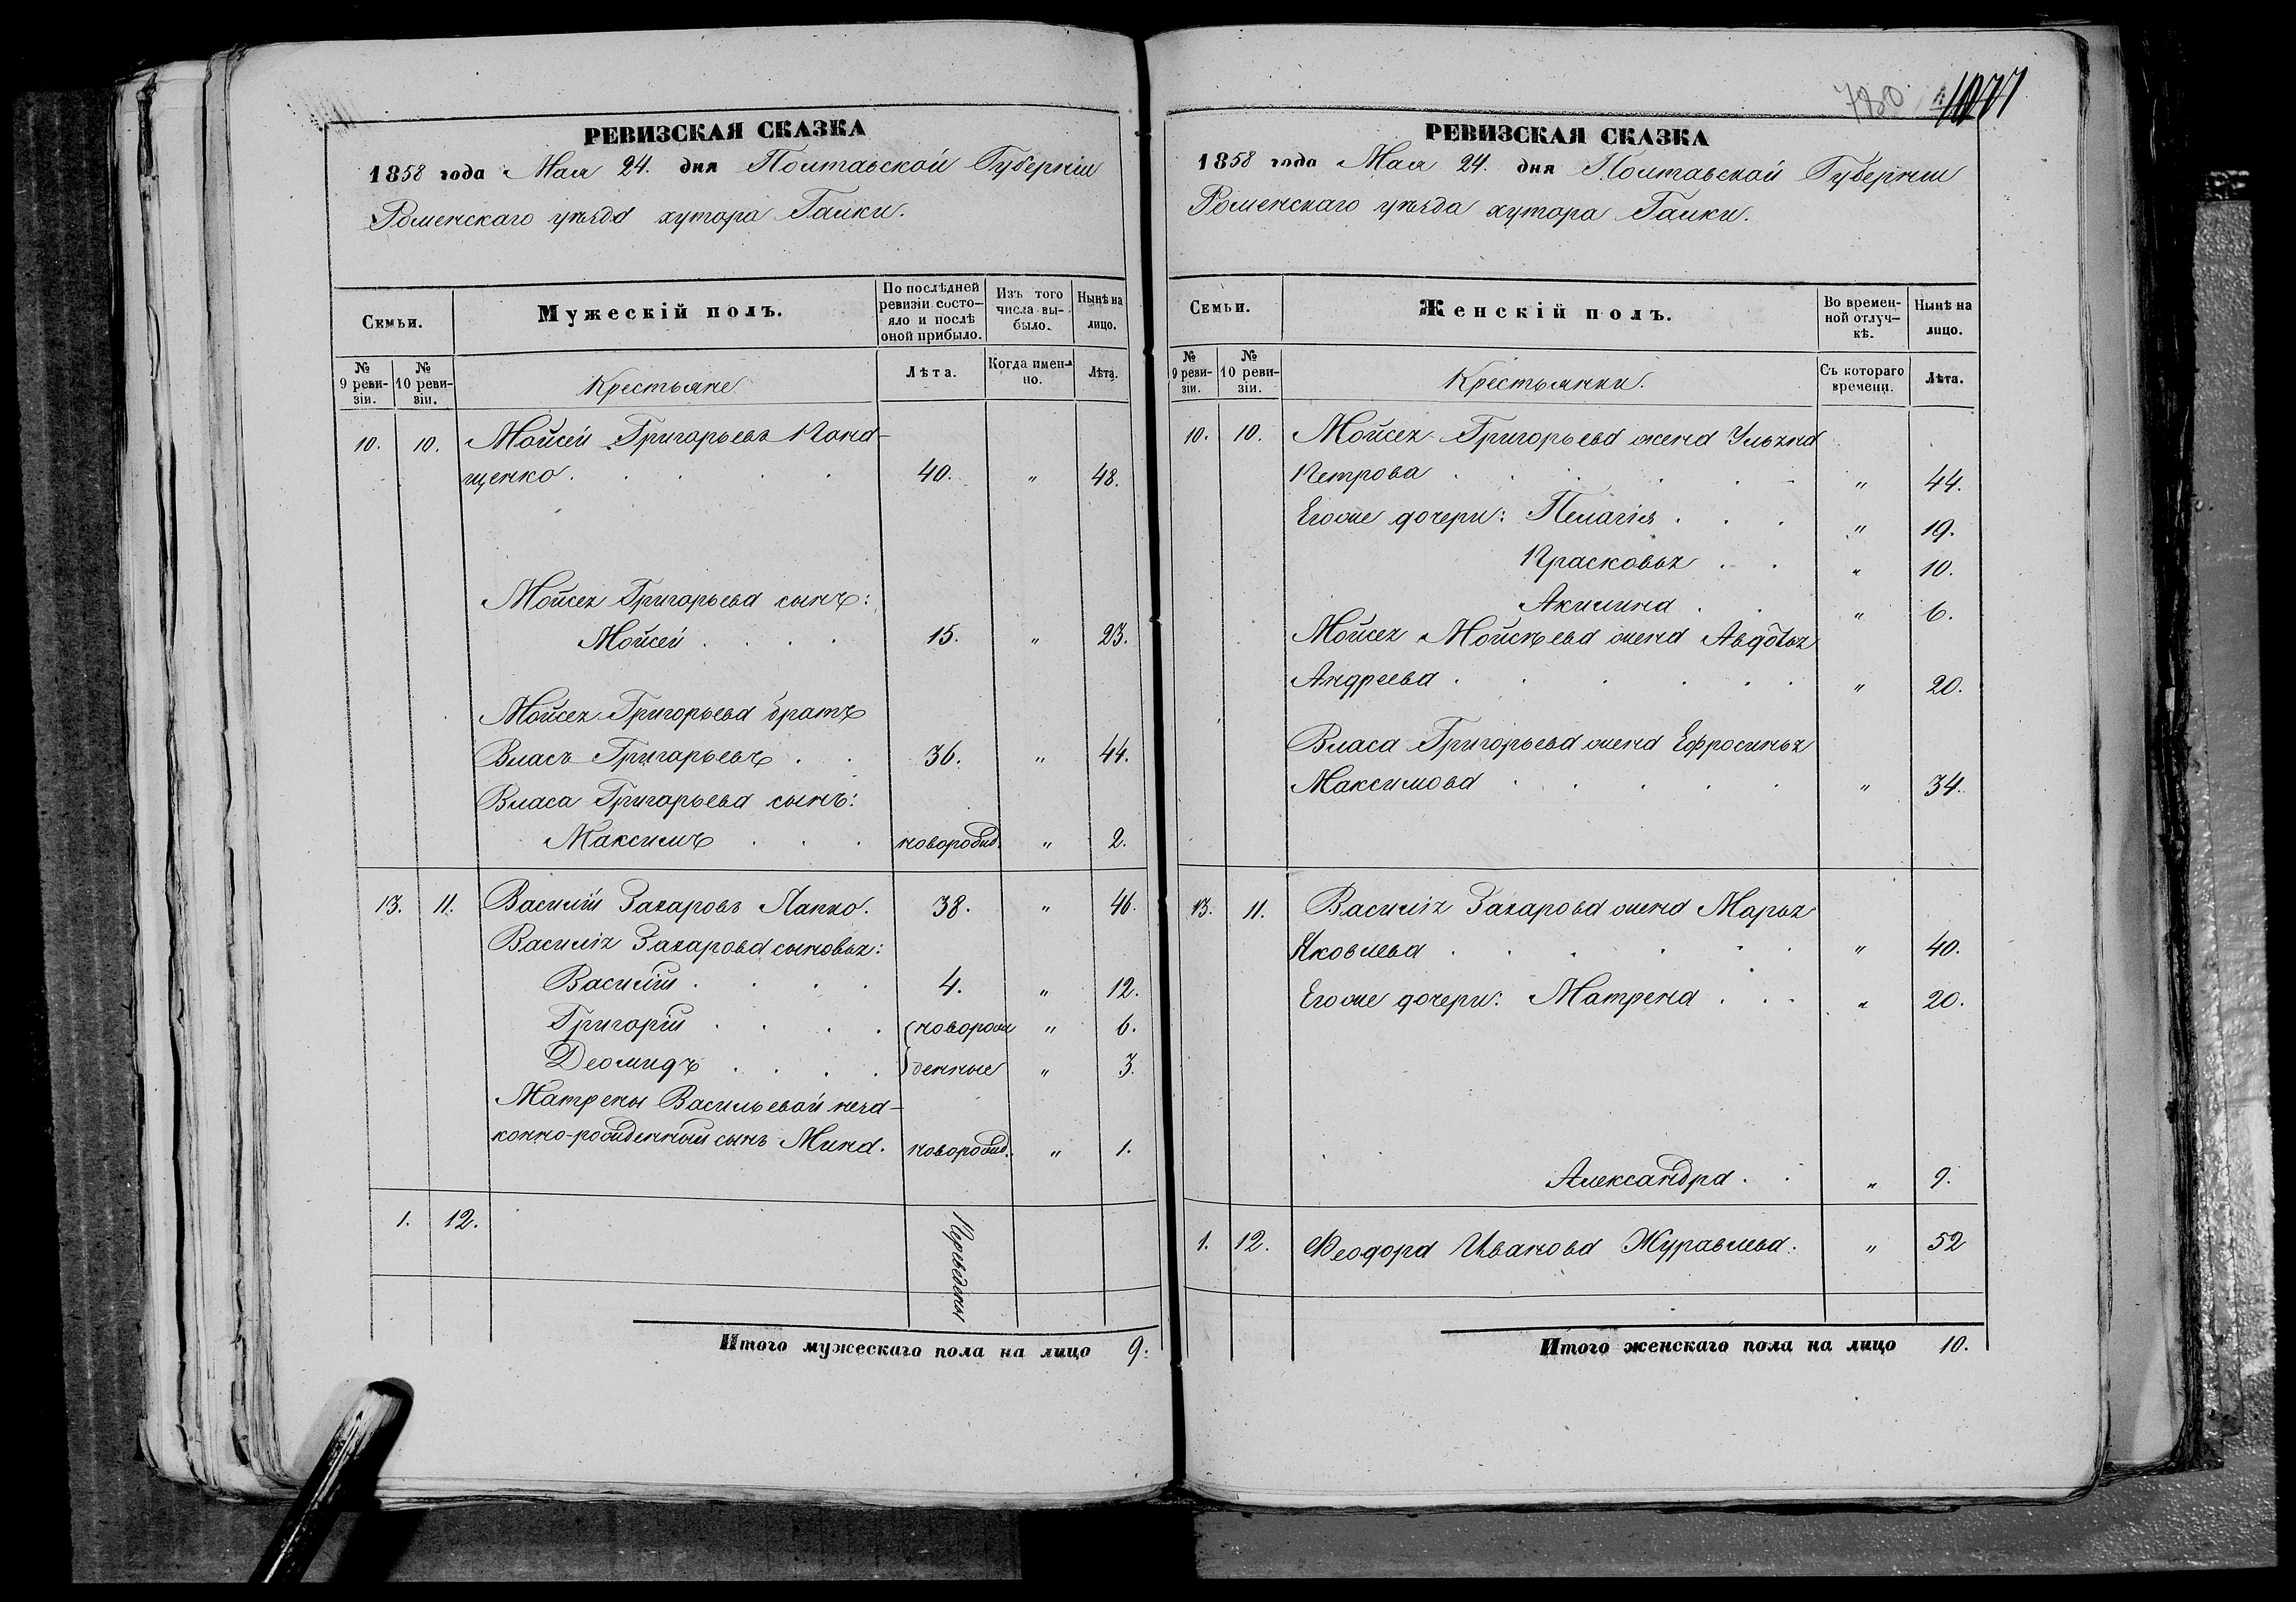 РЕВИЗСКАЯ СКАЗКА
1858 года Мая 24. дня Полтавской Губерніи
Роменскаго уѣзда хутора Галки.
Семьи.
Мужескій полъ.
По послѣдней
ревизіи состо-
яло и послѣ
оной прибыло.
Изъ того
числа вы-
было.
Нынѣ на
лицо.
№
9 реви-
зіи.
№
10 реви-
зіи.
Крестьяне
Лѣта.
Когда имен-
но.
Лѣта.
10. 10. Мойсей Григорьевъ Кона-
щенко . . . . . 40. " 48.
Мойсея Григорьева сынъ:
Мойсей . . . . 15. " 23.
Мойсея Григорьева братъ
Власъ Григорьевъ . . 36. " 44.
Власа Григорьева сынъ:
Максимъ . . . новорожд. " 2.
13. 11. Василій Захаровъ Лапко. 38. " 46.
Василія Захарова сыновья:
Василій . . . . 4. " 12.
Григорій . . . . новорож " 6.
Деомидъ . . . . денные " 3.
Матрены Васильевой неза-
конно-рожденный сынъ Мина. новорожд. " 1.
1. 12. Переведены
Итого мужескаго пола на лицо 9.
780 1077
РЕВИЗСКАЯ СКАЗКА
1858 года Мая 24. дня Полтавской Губерніи
Роменскаго уѣзда хутора Галки.
Семьи.
Женскій полъ.
Во времен-
ной отлуч-
кѣ.
Нынѣ на
лицо.
№
9 реви-
зіи.
№
10 реви-
зіи.
Крестьянки.
Съ котораго
времени.
Лѣта.
10. 10. Мойсея Григорьева жена Ульяна
Петрова . . . . . " 44.
Егоже дочери: Пелагія . . . " 19.
Прасковья . . " 10.
Акилина . . " 6.
Мойсея Мойсѣева жена Авдотья
Андреева . . . . . . " 20.
Власа Григорьева жена Ефросинья
Максимова . . . . . " 34.
13. 11. Василія Захарова жена Марья
Яковлева . . . . . . " 40.
Егоже дочери: Матрена . . . " 20.
Александра . . " 9.
1. 12. Феодора Иванова Журавлева. " 52
Итого женскаго пола на лицо 10.